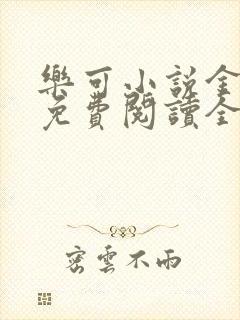 樂可小説全
免費閱讀全
密雲不雨